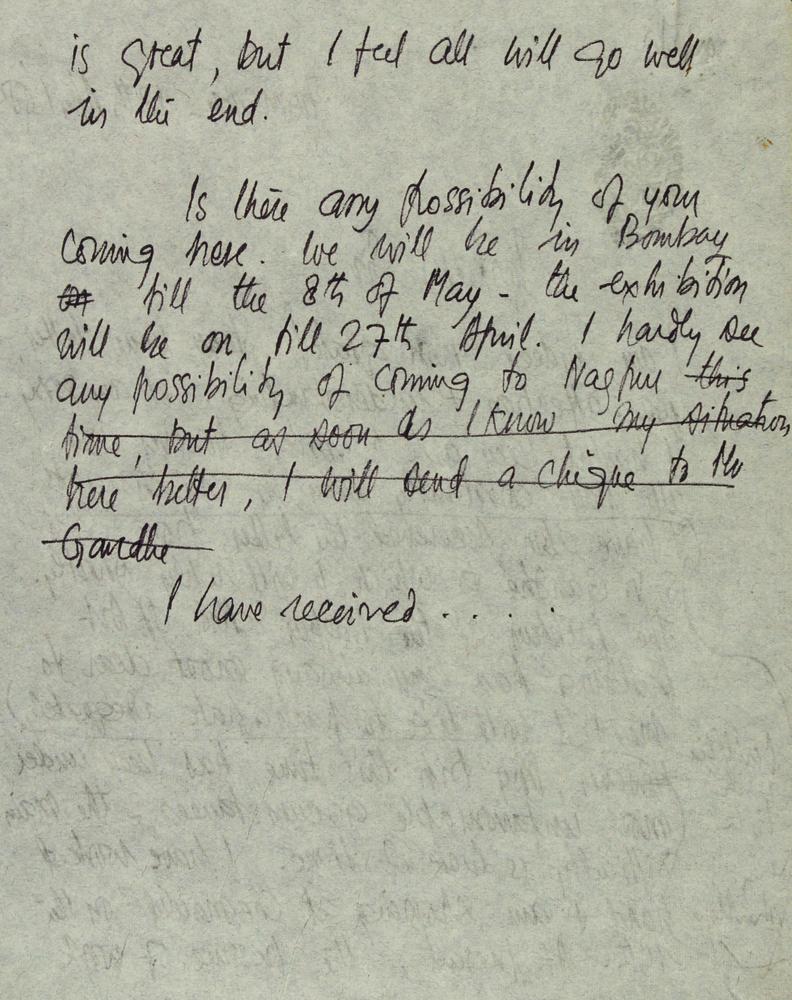 is great, but I feel all will go well
in the end.
Is there any possibility of your
coming here. We will be in Bombay
on till the 8th of May - the exhibition
will be on till 27th April. I hardly see
any possibility of coming to Nagpur this
time, but as soon as I know my situation
here better, I will send a cheque to Mr
Gandhe
I have received . . . . .